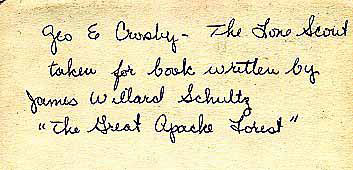 Geo E Crosby - The Lone Scout
taken for book written by
James Willard Schultz
"The Great Apache Forest"